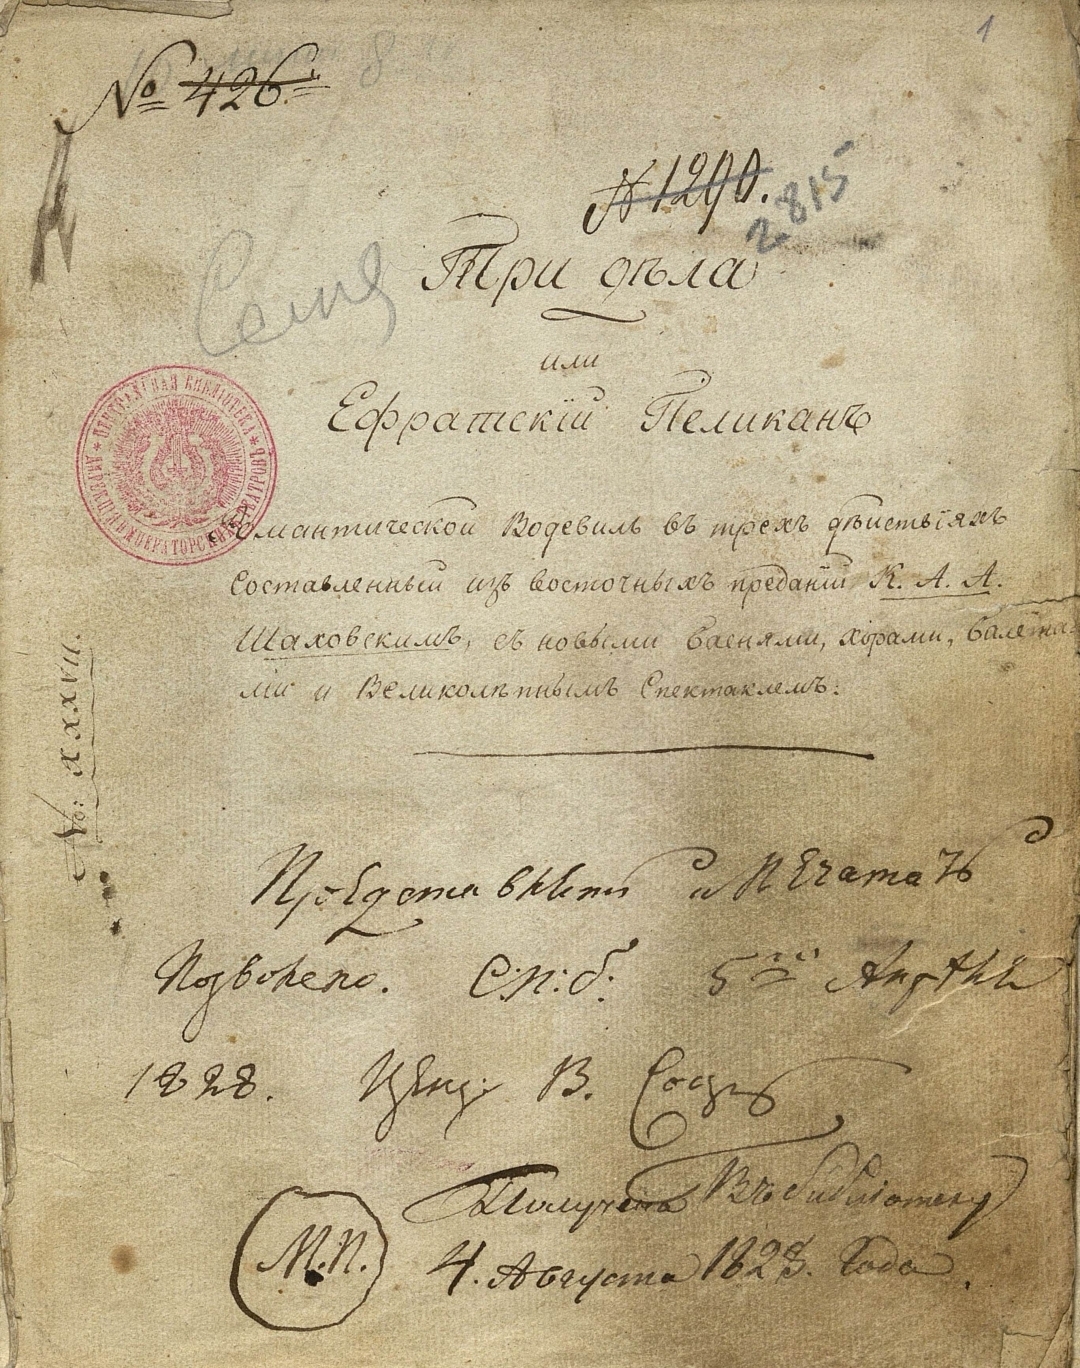 1
№ 426.
№ 1290.
2815
Три дѣла
или
Ефратскій Пеликанъ
ЦЕНТРАЛЬНАЯ БИБЛІОТЕКА
ДИРЕКЦІИ ИМПЕРАТОРСКИХЪ ТЕАТРОВЪ
Романтической Водевиль въ трехъ дѣйствіяхъ
Составленный изъ восточныхъ преданій К. А. А.
Шаховскимъ, съ новыми баснями, хорами, балета-
ми и Великолѣпнымъ Спектаклемъ.
No: XXXVII.
Представить и печатать
Позволено. С.п.б. 5го Апрѣля
1828. Ценз. В.
Получено Въ библіотеку
М.П.
4. Августа 1828. Года.